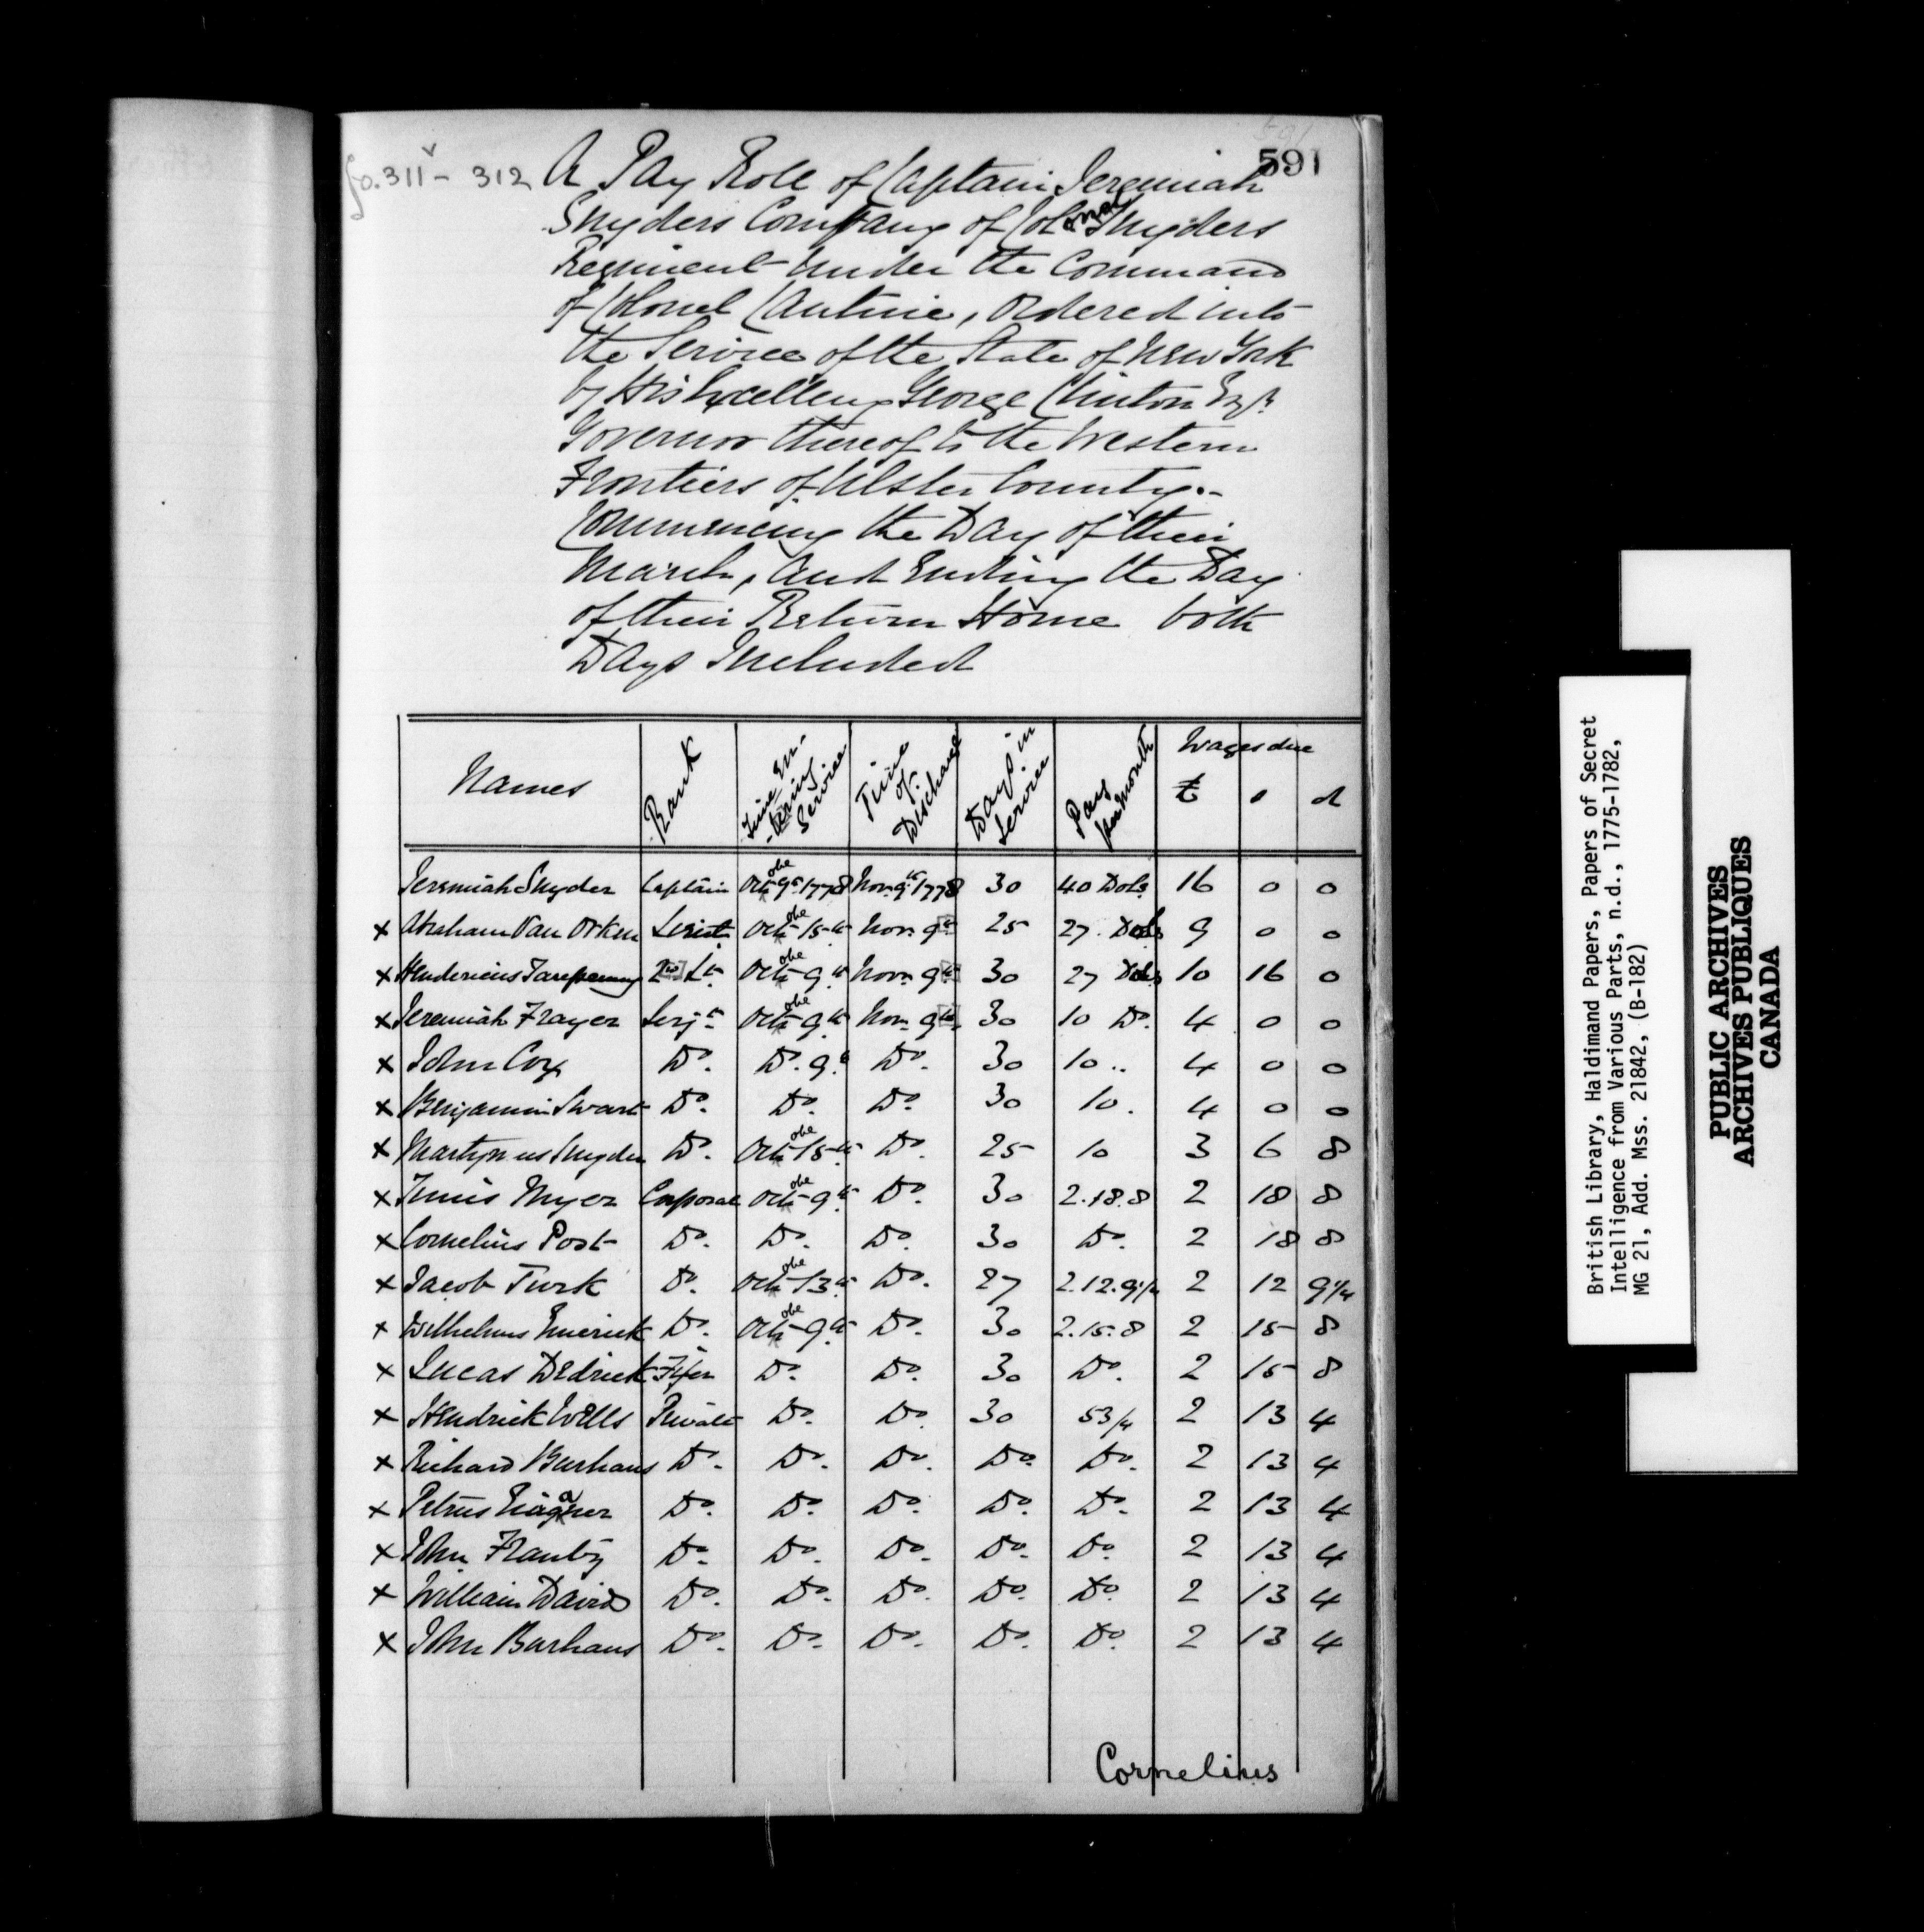 591
fo. 311v - 312
A Pay Role of Captain Jeremiah
Snyders Company of Colonel Snyders
Regiment under the Command
of Colonel Cantine, Ordered into
the Service of the State of New York
by His Excellency George Clinton Esqr.
Governor thereof to the Western
Frontiers of Ulster County.-
Commencing the Day of their
March, and Ending the Day
of their Return Home both
Days Included
Names | Rank | Time Entering Service | Time of Discharge | Days in Service | Pay per Month | Wages due £ s d
Jeremiah Snyder Captain Octobe 9th 1778 Novr. 9th 1778 30 40 Dols 16 0 0
x Abraham Van Orken Lieut Octobe 15th Novr. 9th 25 27 Dols 9 0 0
x Hendericus 2nd Lt. Octobe 9th Novr. 9th 30 27 Dols 10 16 0
x Jeremiah Frayer Serjt Octobe 9th Novr. 9th 30 10 Do. 4 0 0
x John Cox Do. Do. 9th Do. 30 10 .. 4 0 0
x Benjamin Swart Do. Do. Do. 30 10 . 4 0 0
x Martynus Snyder Do. Octobe 15th Do. 25 10 3 6 8
x Tunis Myer Corporal Octobe 9th Do. 30 2.18.8 2 18 8
x Cornelius Post Do. Do. Do. 30 Do. 2 18 8
x Jacob Turk Do. Octobe 13th Do. 27 2.12.9 1/4 2 12 9 1/4
x Wilhelmus Emerick Do. Octobe 9th Do. 30 2.15.8 2 15 8
x Lucas Dedrick Fifer Do. Do. 30 Do. 2 15 8
x Hendrick Wells Private Do. Do. 30 53/4 2 13 4
x Richard Burhans Do. Do. Do. Do. Do. 2 13 4
x Petrus Do. Do. Do. Do. Do. 2 13 4
x John Do. Do. Do. Do. Do. 2 13 4
x William David Do. Do. Do. Do. Do. 2 13 4
x John Burhans Do. Do. Do. Do. Do. 2 13 4
Cornelius
British Library, Haldimand Papers, Papers of Secret
Intelligence from Various Parts, n.d., 1775-1782,
MG 21, Add. Mss. 21842, (B-182)
PUBLIC ARCHIVES
ARCHIVES PUBLIQUES
CANADA